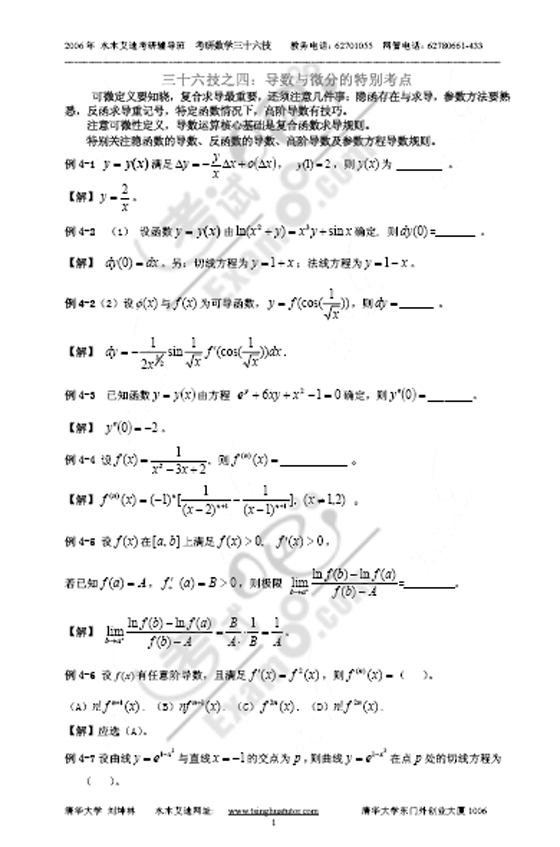 2006年 水木艾迪考研辅导班 考研数学三十六技 教务电话：62701055 网管电话：62780661-433
三十六技之四：导数与微分的特别考点
可微定义要知晓，复合求导最重要，还须注意几件事：隐函存在与求导，参数方法要熟
悉，反函求导重记号，特定函数情况下，高阶导数有技巧。
注意可微性定义，导数运算核心基础是复合函数求导规则。
特别关注隐函数的导数、反函数的导数、高阶导数及参数方程导数规则。
例4-1 y = y(x) 满足 Δy = -y/x Δx + o(Δx)， y(1) = 2，则 y(x) 为 ________ 。
【解】 y = 2/x 。
例4-2 （1） 设函数 y = y(x) 由 ln(x² + y) = x³y + sin x 确定，则 dy(0) =_______ 。
【解】 dy(0) = dx。另：切线方程为 y = 1 + x；法线方程为 y = 1 - x。
例4-2（2）设 φ(x) 与 f(x) 为可导函数， y = f(cos(1/√x))，则 dy = ______ 。
【解】 dy = 1/(2x^(3/2)) sin 1/√x f′(cos(1/√x))dx .
例4-3 已知函数 y = y(x) 由方程 e^y + 6xy + x² - 1 = 0 确定，则 y″(0) = ________。
【解】 y″(0) = -2 。
例4-4 设 f(x) = 1/(x² - 3x + 2)，则 f^(n)(x) = ____________ 。
【解】 f^(n)(x) = (-1)^n [1/(x-2)^(n+1) - 1/(x-1)^(n+1)], (x ≠ 1,2) 。
例4-5 设 f(x) 在 [a, b] 上满足 f(x) > 0, f′(x) > 0，
若已知 f(a) = A， f′₊(a) = B > 0，则极限 lim b→a⁺ (ln f(b) - ln f(a))/(f(b) - A) =_________。
【解】 lim b→a⁺ (ln f(b) - ln f(a))/(f(b) - A) = B/A · 1/B = 1/A 。
例4-6 设 f(x) 有任意阶导数，且满足 f′(x) = f²(x)，则 f^(n)(x) = （ ）。
（A）n! f^(n+1)(x) . （B）nf^(n+1)(x) . （C）f^(2n)(x) . （D）n! f^(2n)(x) .
【解】应选（A）。
例4-7 设曲线 y = e^(1-x²) 与直线 x = -1 的交点为 p，则曲线 y = e^(1-x²) 在点 p 处的切线方程为
（ ）。
清华大学 刘坤林 水木艾迪网址： www.tsinghuatutor.com 清华大学东门外创业大厦 1006
1